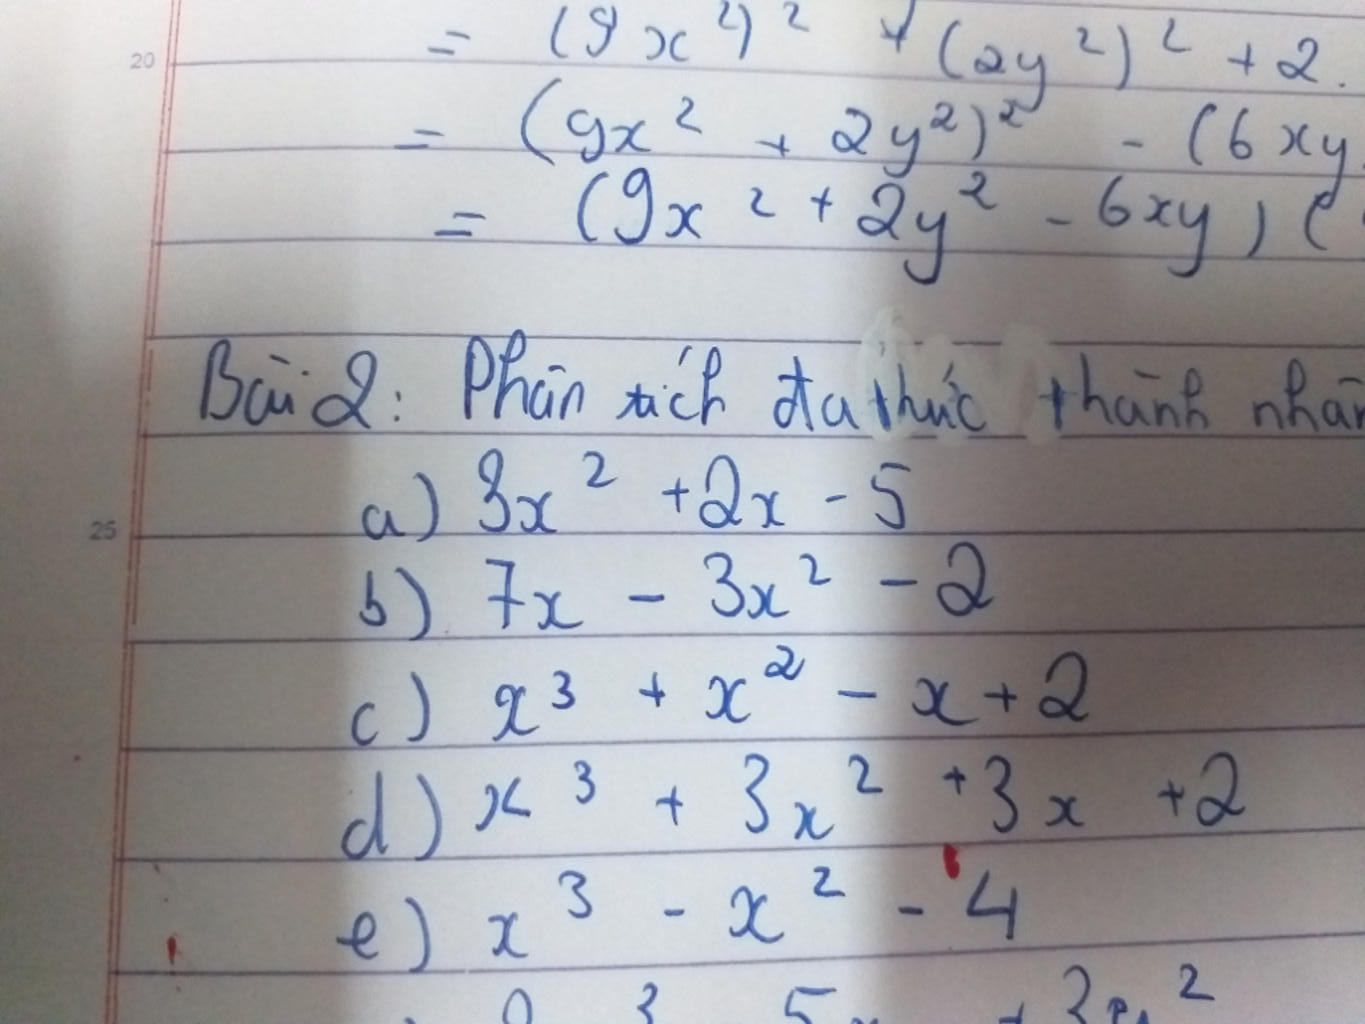 20
= (9x²)² + (2y²)² + 2.
= (9x² + 2y²)² - (6xy
= (9x² + 2y² - 6xy) (
Bài 2: Phân tích đa thức thành nhân
25
a) 3x² + 2x - 5
b) 7x - 3x² - 2
c) x³ + x² - x + 2
d) x³ + 3x² + 3x + 2
e) x³ - x² - 4